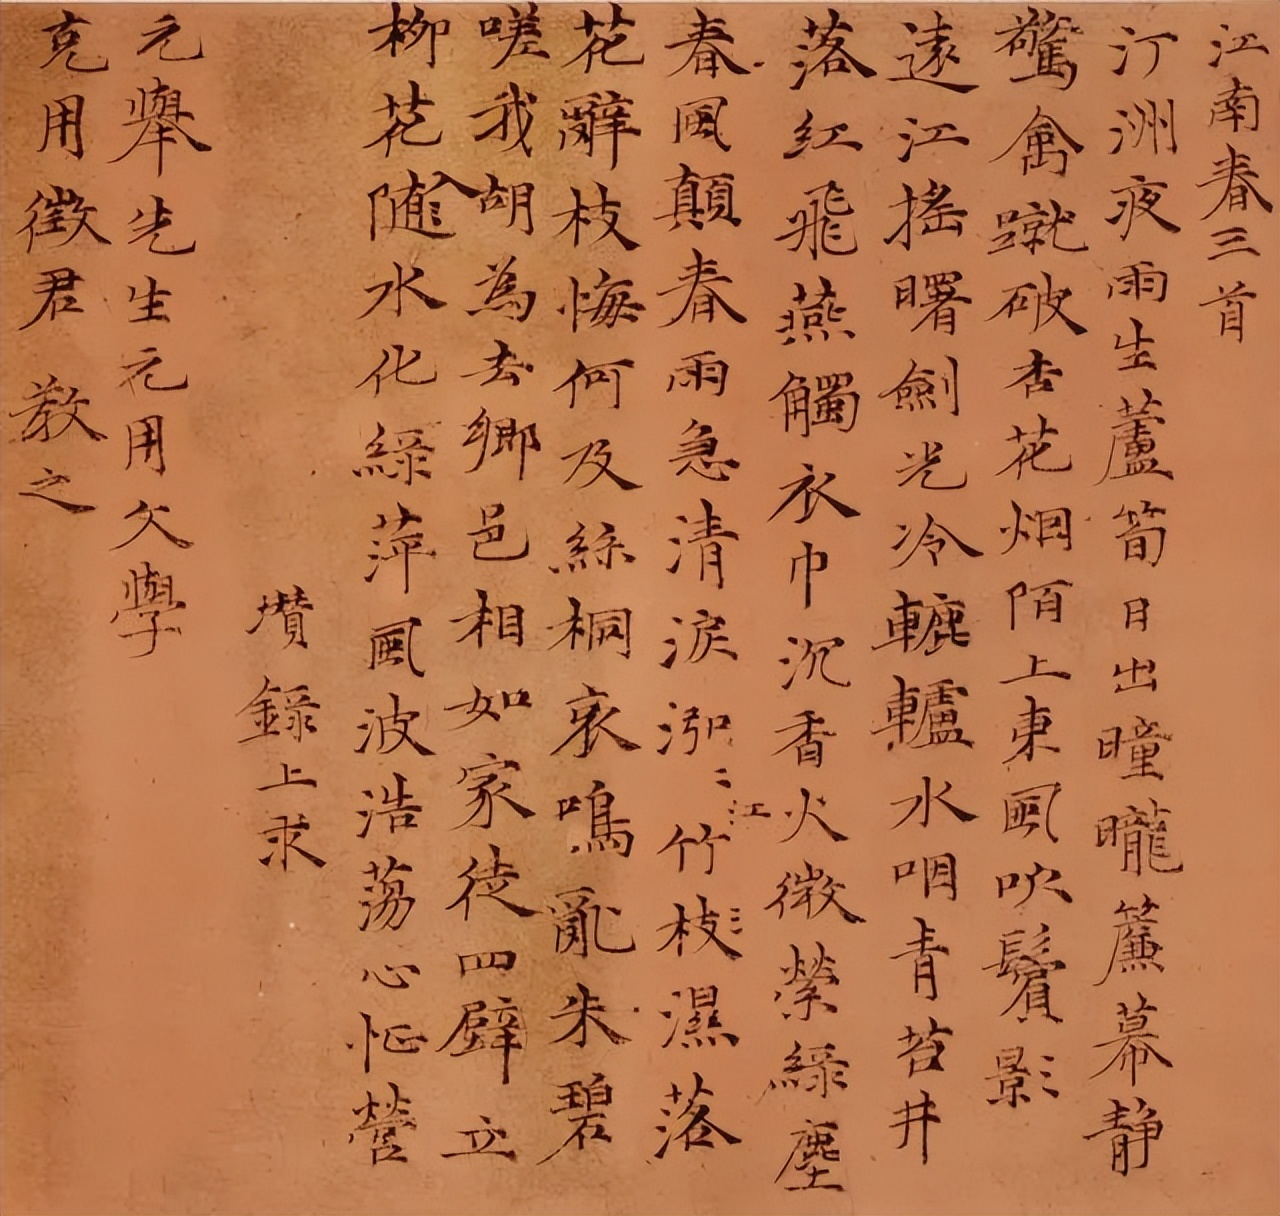 江南春三首
汀洲夜雨生蘆筍日出曈曨簾幕靜
驚禽蹴破杏花烟陌上東風吹鬢影
遠江搖曙劍光冷轆轤水咽青苔井
落紅飛燕觸衣巾沉香火微縈綠塵
春風顛春雨急清淚泓〻江竹枝濕落
花辭枝悔何及絲桐哀鳴亂朱碧
嗟我胡為去鄉邑相如家徒四壁立
柳花入随水化綠萍風波浩蕩心怔營
瓚錄上求
元舉先生元用文學
克用徵君 教之